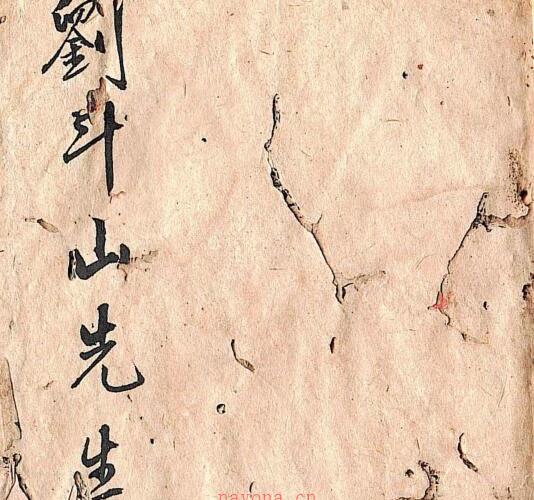 劉斗山先生
nayona.cn